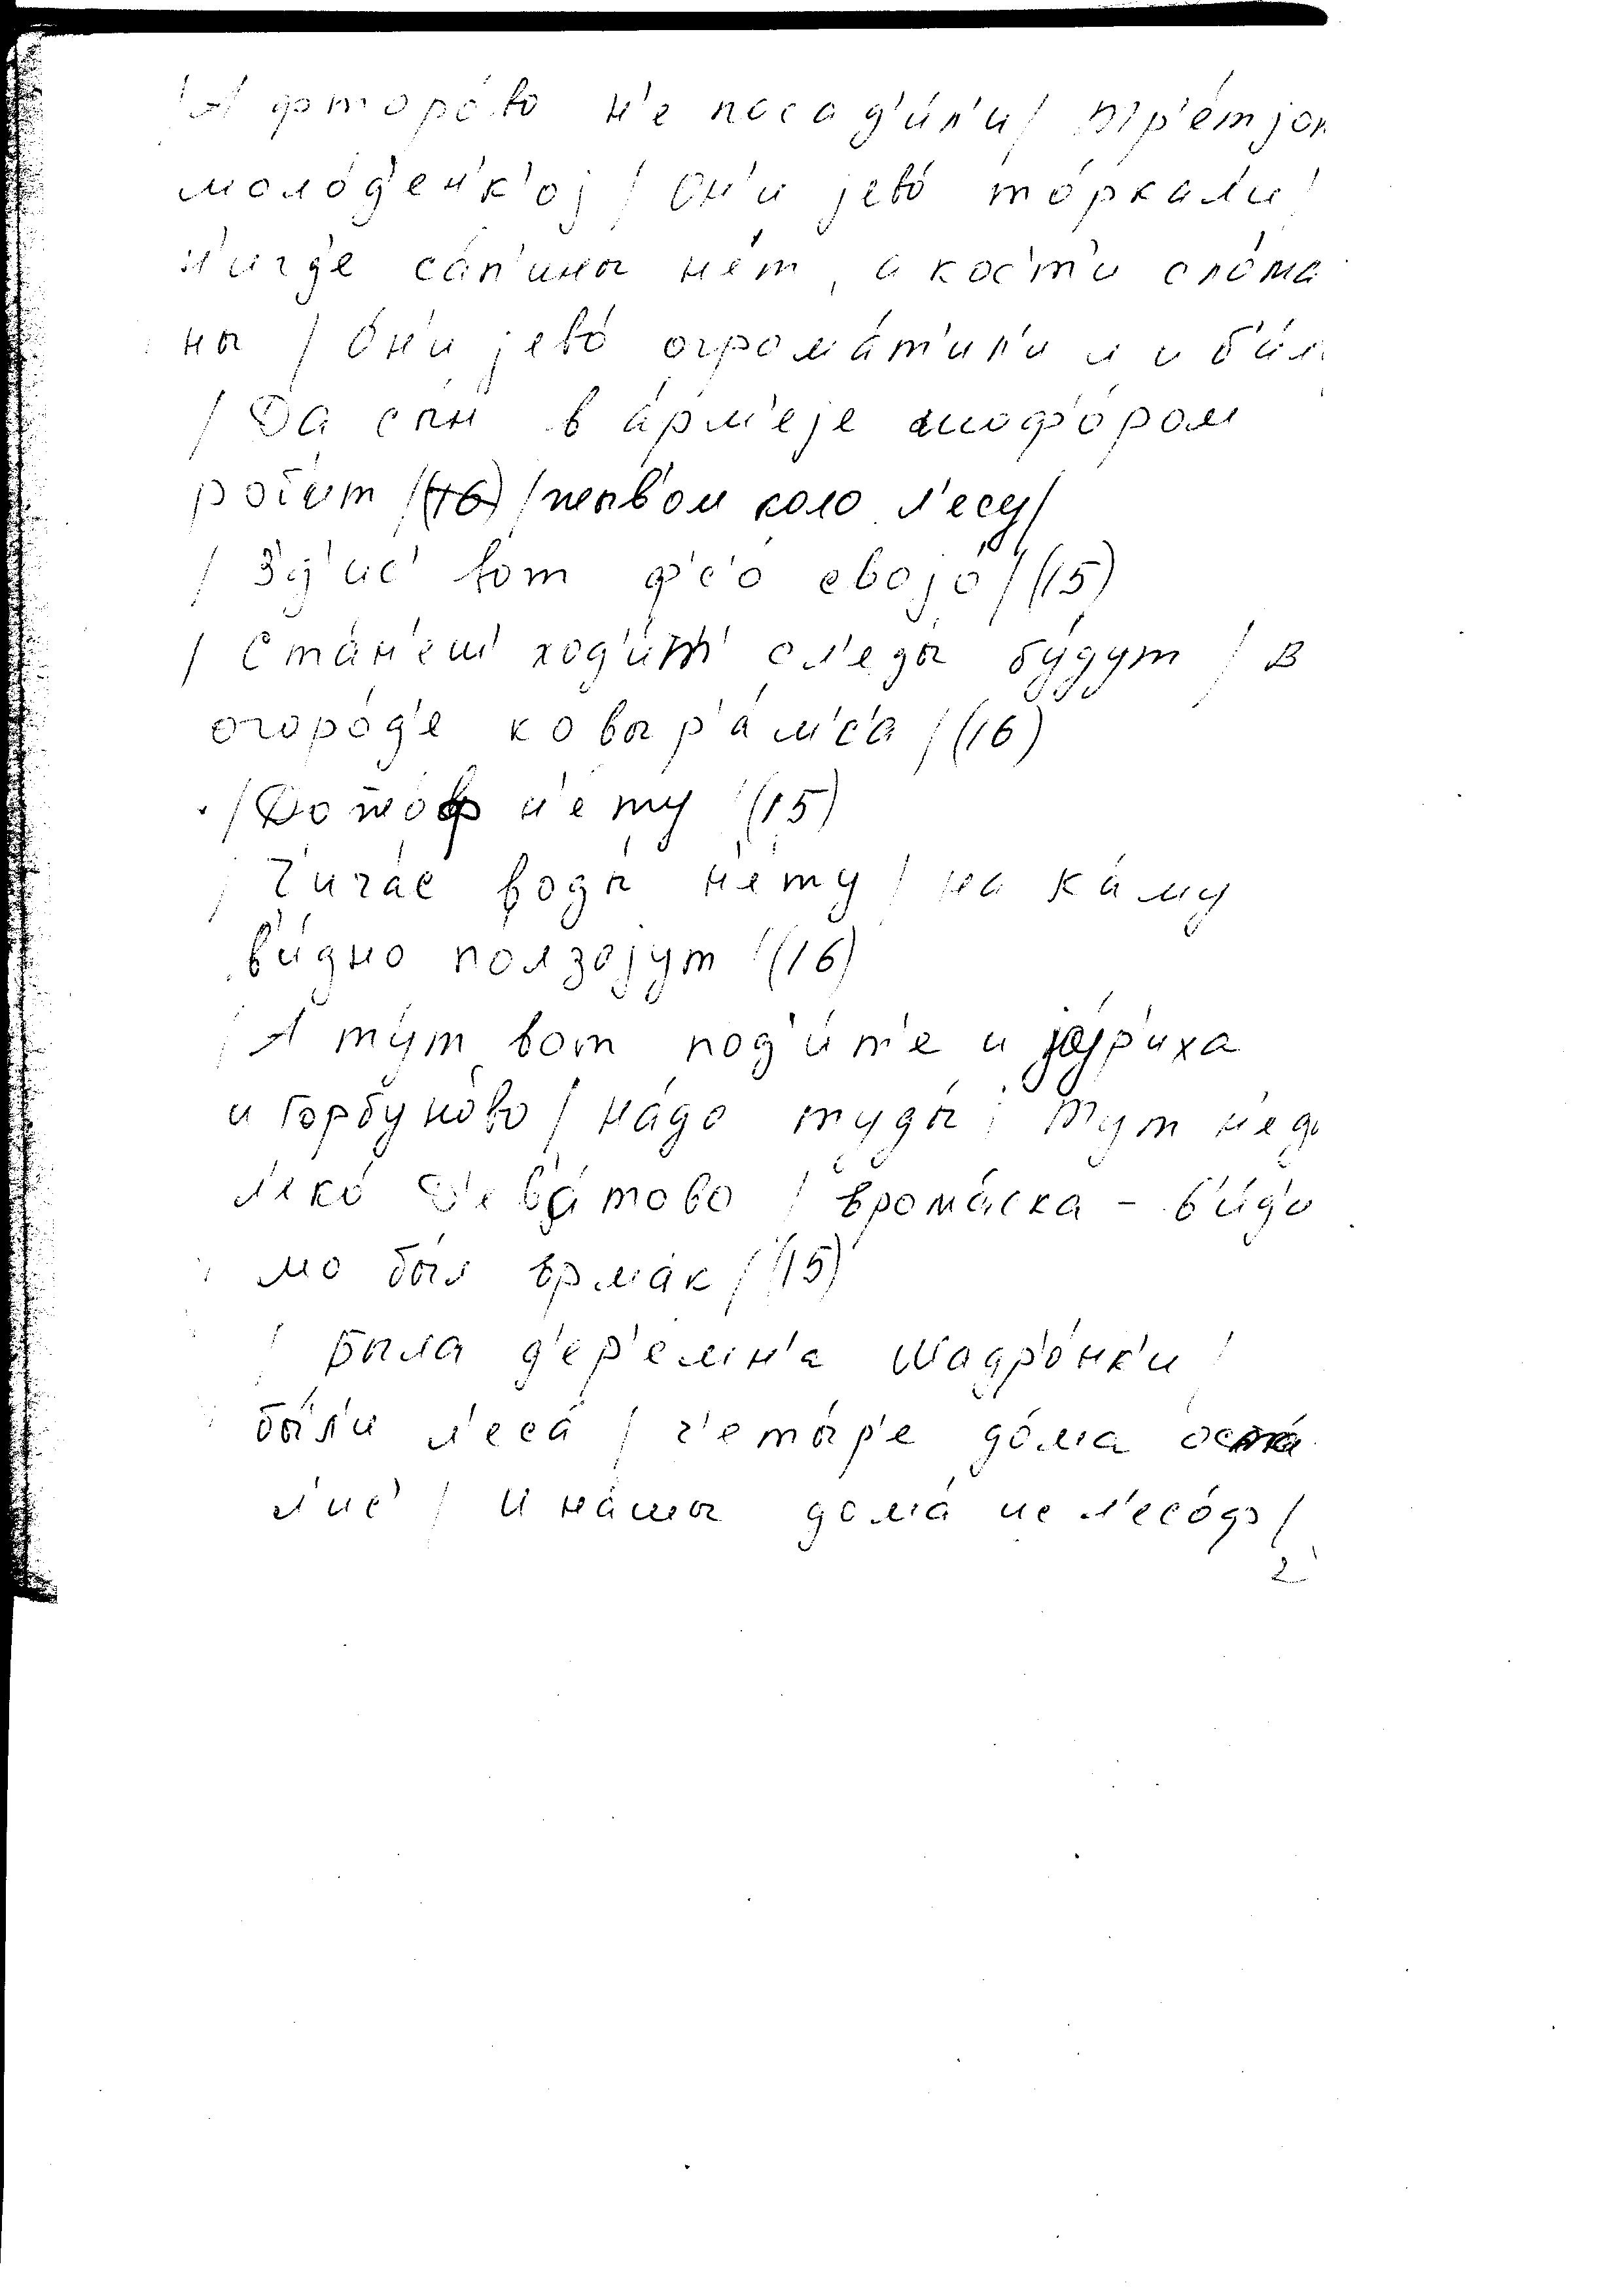 /А фторо́во н'е посад'и́л'и/ Тр'е́тјој
моло́д'ен'к'ој / Он'и јево́ то́ркал'и /
н'игд'е са́п'ины не́т, а кос'т'и сло́ма
ны / О́н'и јево́ огрома́т'ил'и и би́л
/ Да сы́н в а́рм'еје шофо́ром
ро́бит / /перв'ом коло л'есу/
/ З'д'ис' вот ф'с'о својо́/(15)
/ Ста́н'еш' ход'и́т' сл'еды́ бу́дут / В
огоро́д'е ковыр'а́мс'а/(16)
/До н'е́ту /(15)
/ Чича́с воды́ н'е́ту / на ка́му
в'и́дно ползојут /(16)
/А ту́т вот под'и́т'е и јајр'иха
и Горбуно́во / на́до туды́ / Тут н'едо
л'еко́ Д'ев'а́тово / Ермаска - в'и́д'о
мо был Ерма́к /(15)
/ Была д'ер'емн'а Шадр'о́нк'и /
бы́л'и л'еса́ / ч'еты́р'е до́ма оста́
л'ис' / И на́шы дома́ ис л'есо́ф/
2